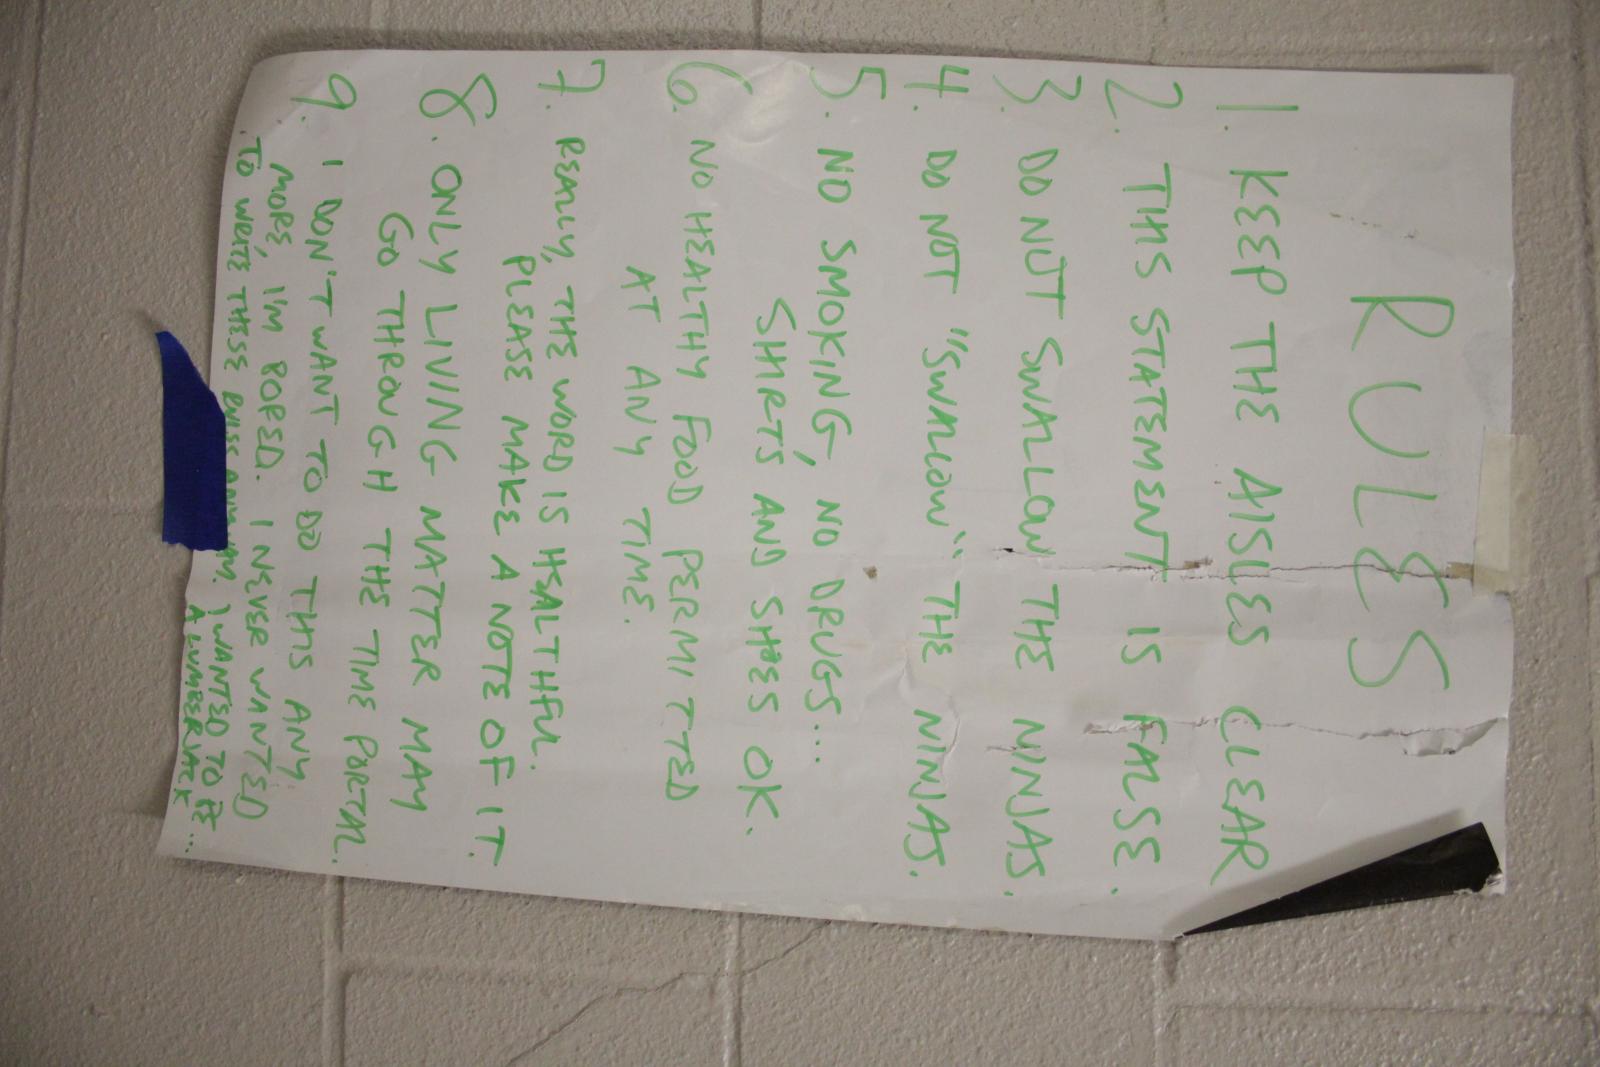 RULES
1. KEEP THE AISLES CLEAR
2. THIS STATEMENT IS FALSE.
3. DO NOT SWALLOW THE NINJAS.
4. DO NOT "SWALLOW" THE NINJAS.
5. NO SMOKING, NO DRUGS...
SHIRTS AND SHOES OK.
6. NO HEALTHY FOOD PERMITTED
AT ANY TIME.
7. REALLY, THE WORD IS HEALTHFUL.
PLEASE MAKE A NOTE OF IT.
8. ONLY LIVING MATTER MAY
GO THROUGH THE TIME PORTAL.
9. I DON'T WANT TO DO THIS ANY
MORE, I'M BORED. I NEVER WANTED
TO WRITE THESE RULES ANYWAY. I WANTED TO BE...
A LUMBERJACK...